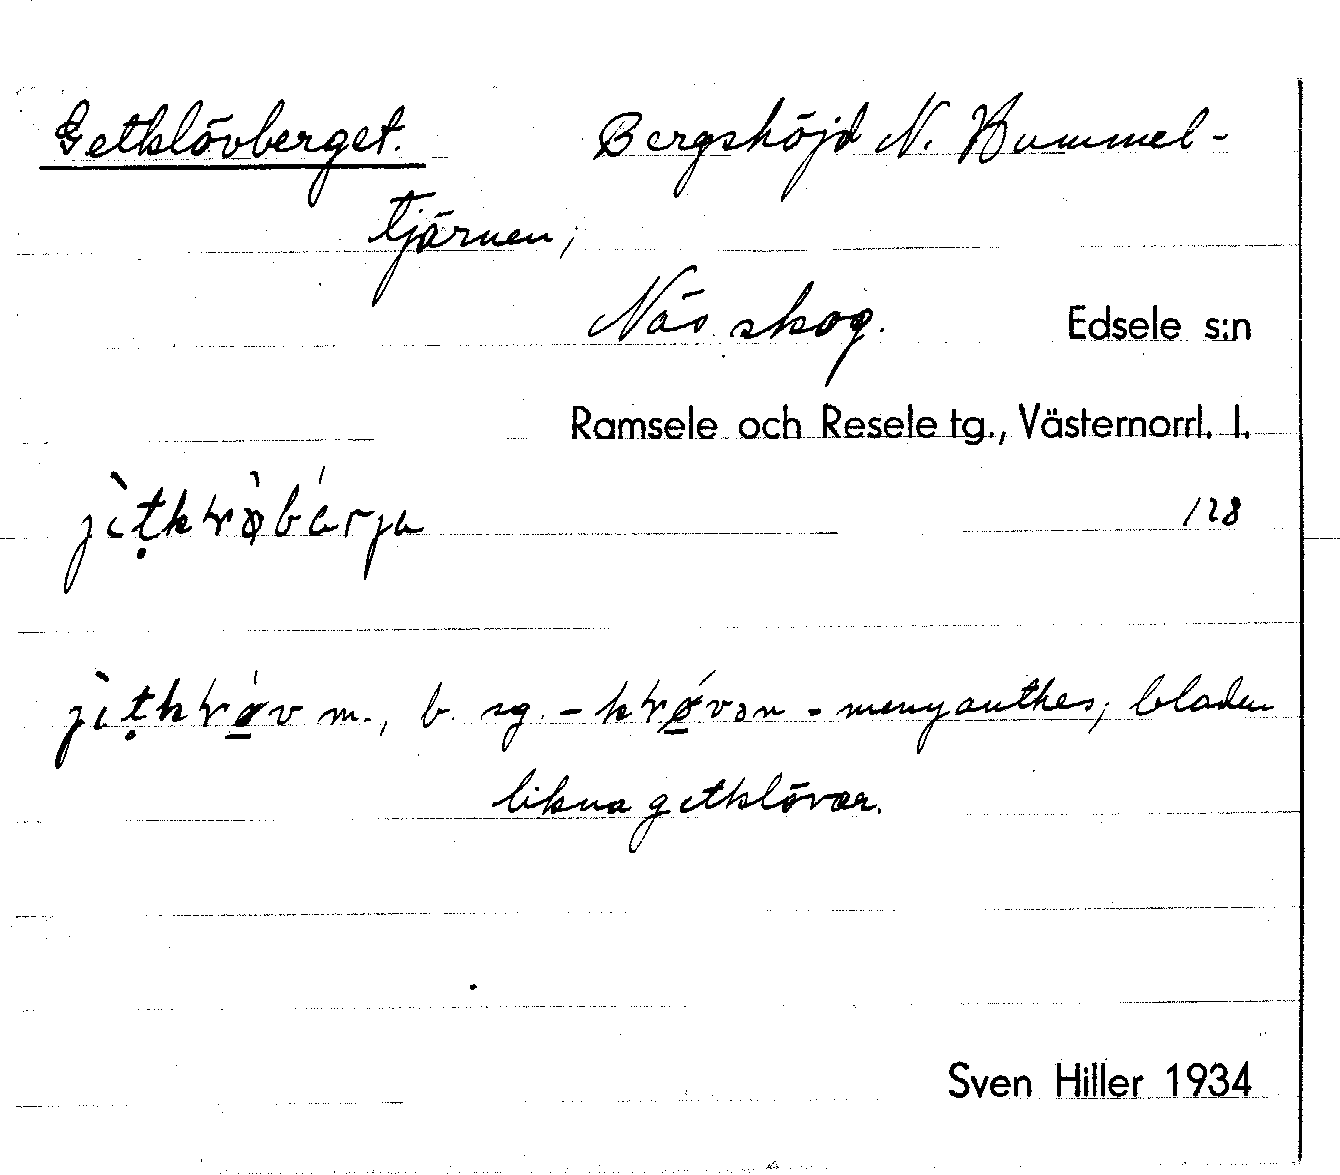 Getklövberget. Bergshöjd N. Hummel-
tjärnen,
Näs skog. Edsele s:n
Ramsele och Resele tg., Västernorrl. l.
128
m., b. sg. - menyanthes, bladen
likna getklövar.
Sven Hiller 1934